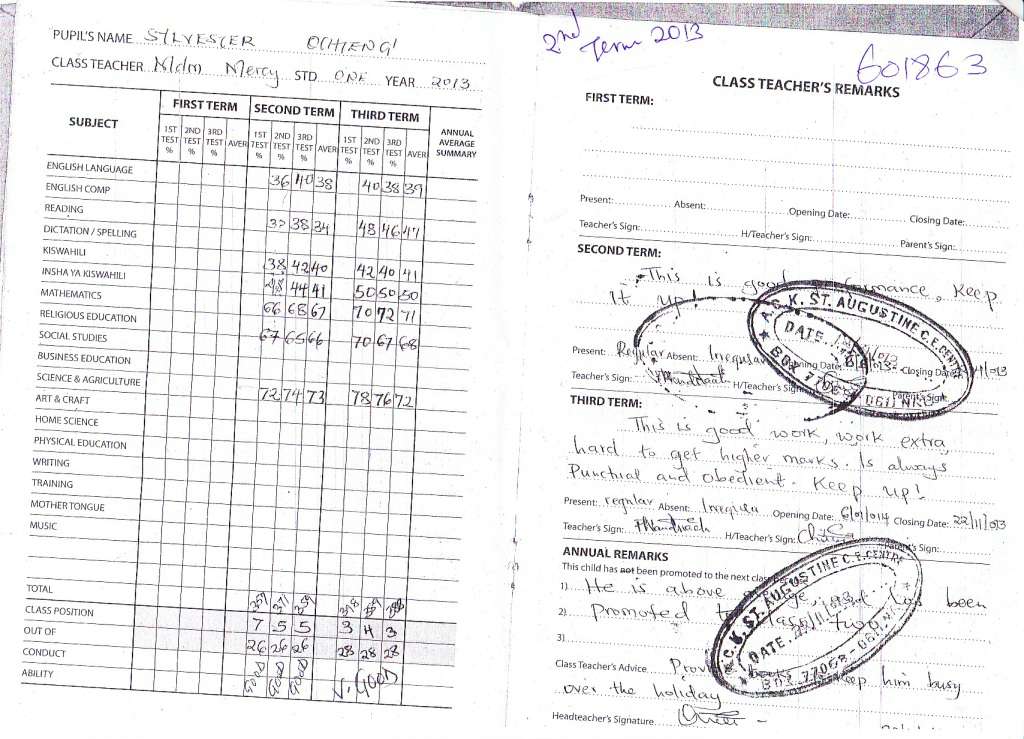 PUPIL'S NAME SYLVESTER OCHIENG'
CLASS TEACHER Mdm Mercy STD ONE YEAR 2013
SUBJECT FIRST TERM SECOND TERM THIRD TERM ANNUAL AVERAGE SUMMARY
1ST TEST % 2ND TEST % 3RD TEST % AVER 1ST TEST % 2ND TEST % 3RD TEST % AVER 1ST TEST % 2ND TEST % 3RD TEST % AVER
ENGLISH LANGUAGE 36 40 38 40 38 39
ENGLISH COMP
READING
DICTATION / SPELLING 38 34 48 46 47
KISWAHILI
INSHA YA KISWAHILI 38 42 40 42 40 41
MATHEMATICS 44 41 50 50 50
RELIGIOUS EDUCATION 66 68 67 70 72 71
SOCIAL STUDIES 67 65 66 70 67 68
BUSINESS EDUCATION
SCIENCE & AGRICULTURE
ART & CRAFT 72 74 73 78 76 72
HOME SCIENCE
PHYSICAL EDUCATION
WRITING
TRAINING
MOTHER TONGUE
MUSIC
TOTAL
CLASS POSITION 7 5 5 3 4 3
OUT OF 26 26 26 28 28 28
CONDUCT GOOD GOOD GOOD V. GOOD
ABILITY
2nd Term 2013
601863
CLASS TEACHER'S REMARKS
FIRST TERM:
Present: Absent: Opening Date: Closing Date:
Teacher's Sign: H/Teacher's Sign: Parent's Sign:
SECOND TERM:
This is good performance, Keep
It up!
Present: Regular Absent: Irregular Opening Date: Closing Date:
Teacher's Sign: H/Teacher's Sign: Parent's Sign:
A.C.K. ST. AUGUSTINE C.E. CENTRE
DATE
BOX 77068 - 0611 NRB
THIRD TERM:
This is good work, work extra
hard to get higher marks. Is always
Punctual and obedient. Keep up!
Present: regular Absent: Irregular Opening Date: 6/01/014 Closing Date: 22/11/013
Teacher's Sign: H/Teacher's Sign: Parent's Sign:
ANNUAL REMARKS
This child has not been promoted to the next class
1) He is above has been
2) Promoted to class two
3)
A.C.K. ST. AUGUSTINE C.E. CENTRE
DATE
BOX 77068 - 0611 NRB
Class Teacher's Advice. Provide books keep him busy
over the holiday
Headteacher's Signature